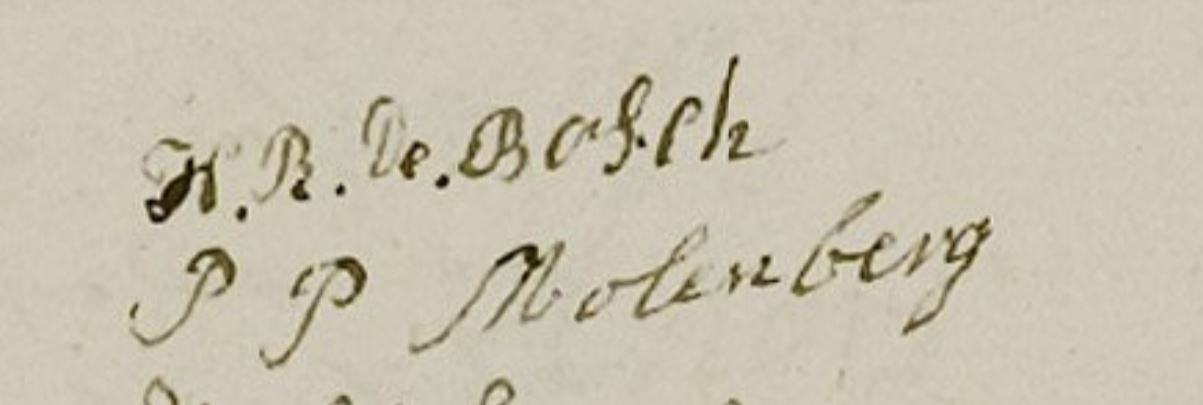 H. R. De. Bosch
P P Molenberg